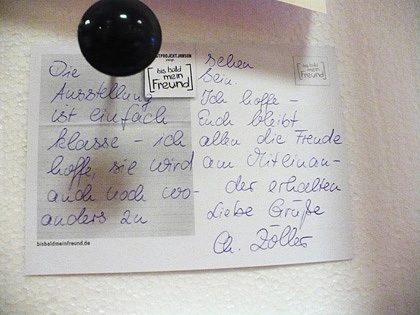 Die
Ausstellung
ist einfach
klasse – ich
hoffe, sie wird
auch noch wo-
anders zu
sehen
sein.
Ich hoffe –
Euch bleibt
allen die Freude
am Miteinan-
der erhalten
Liebe Grüße
Ch. Zöller
bis bald
mein
Freund
bis bald
mein
Freund
bisbaldmeinfreund.de